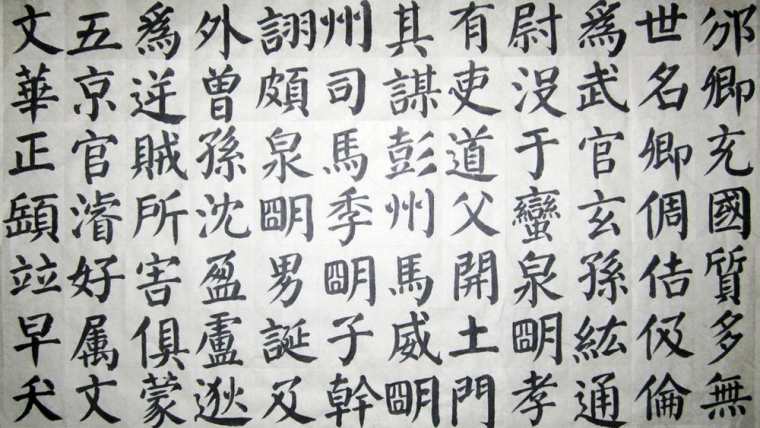 邠卿充國質多無
世名卿倜佶伋倫
爲武官玄孫紘通
尉没于蠻泉朙孝
有吏道父開土門
其謀彭州馬威朙
州司馬季朙子幹
詡頗泉朙男誕及
外曾孫沈盈盧逖
爲逆賊所害俱蒙
五京官濬好属文
文華正竝早夭